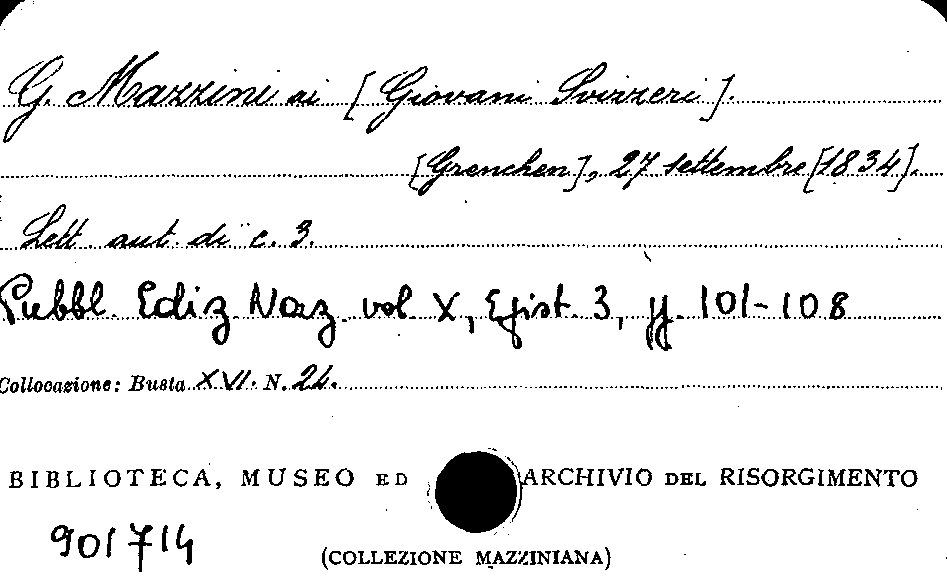 G. Mazzini ai [Giovani Svizzeri].
[Grenchen], 27 settembre [1834].
Lett. aut. di c. 3.
Pubbl. Ediz Naz. vol X, Epist. 3, pp. 101-108
Collocazione: Busta XVI. N. 24.
BIBLIOTECA, MUSEO ED ARCHIVIO DEL RISORGIMENTO
901714
(COLLEZIONE MAZZINIANA)